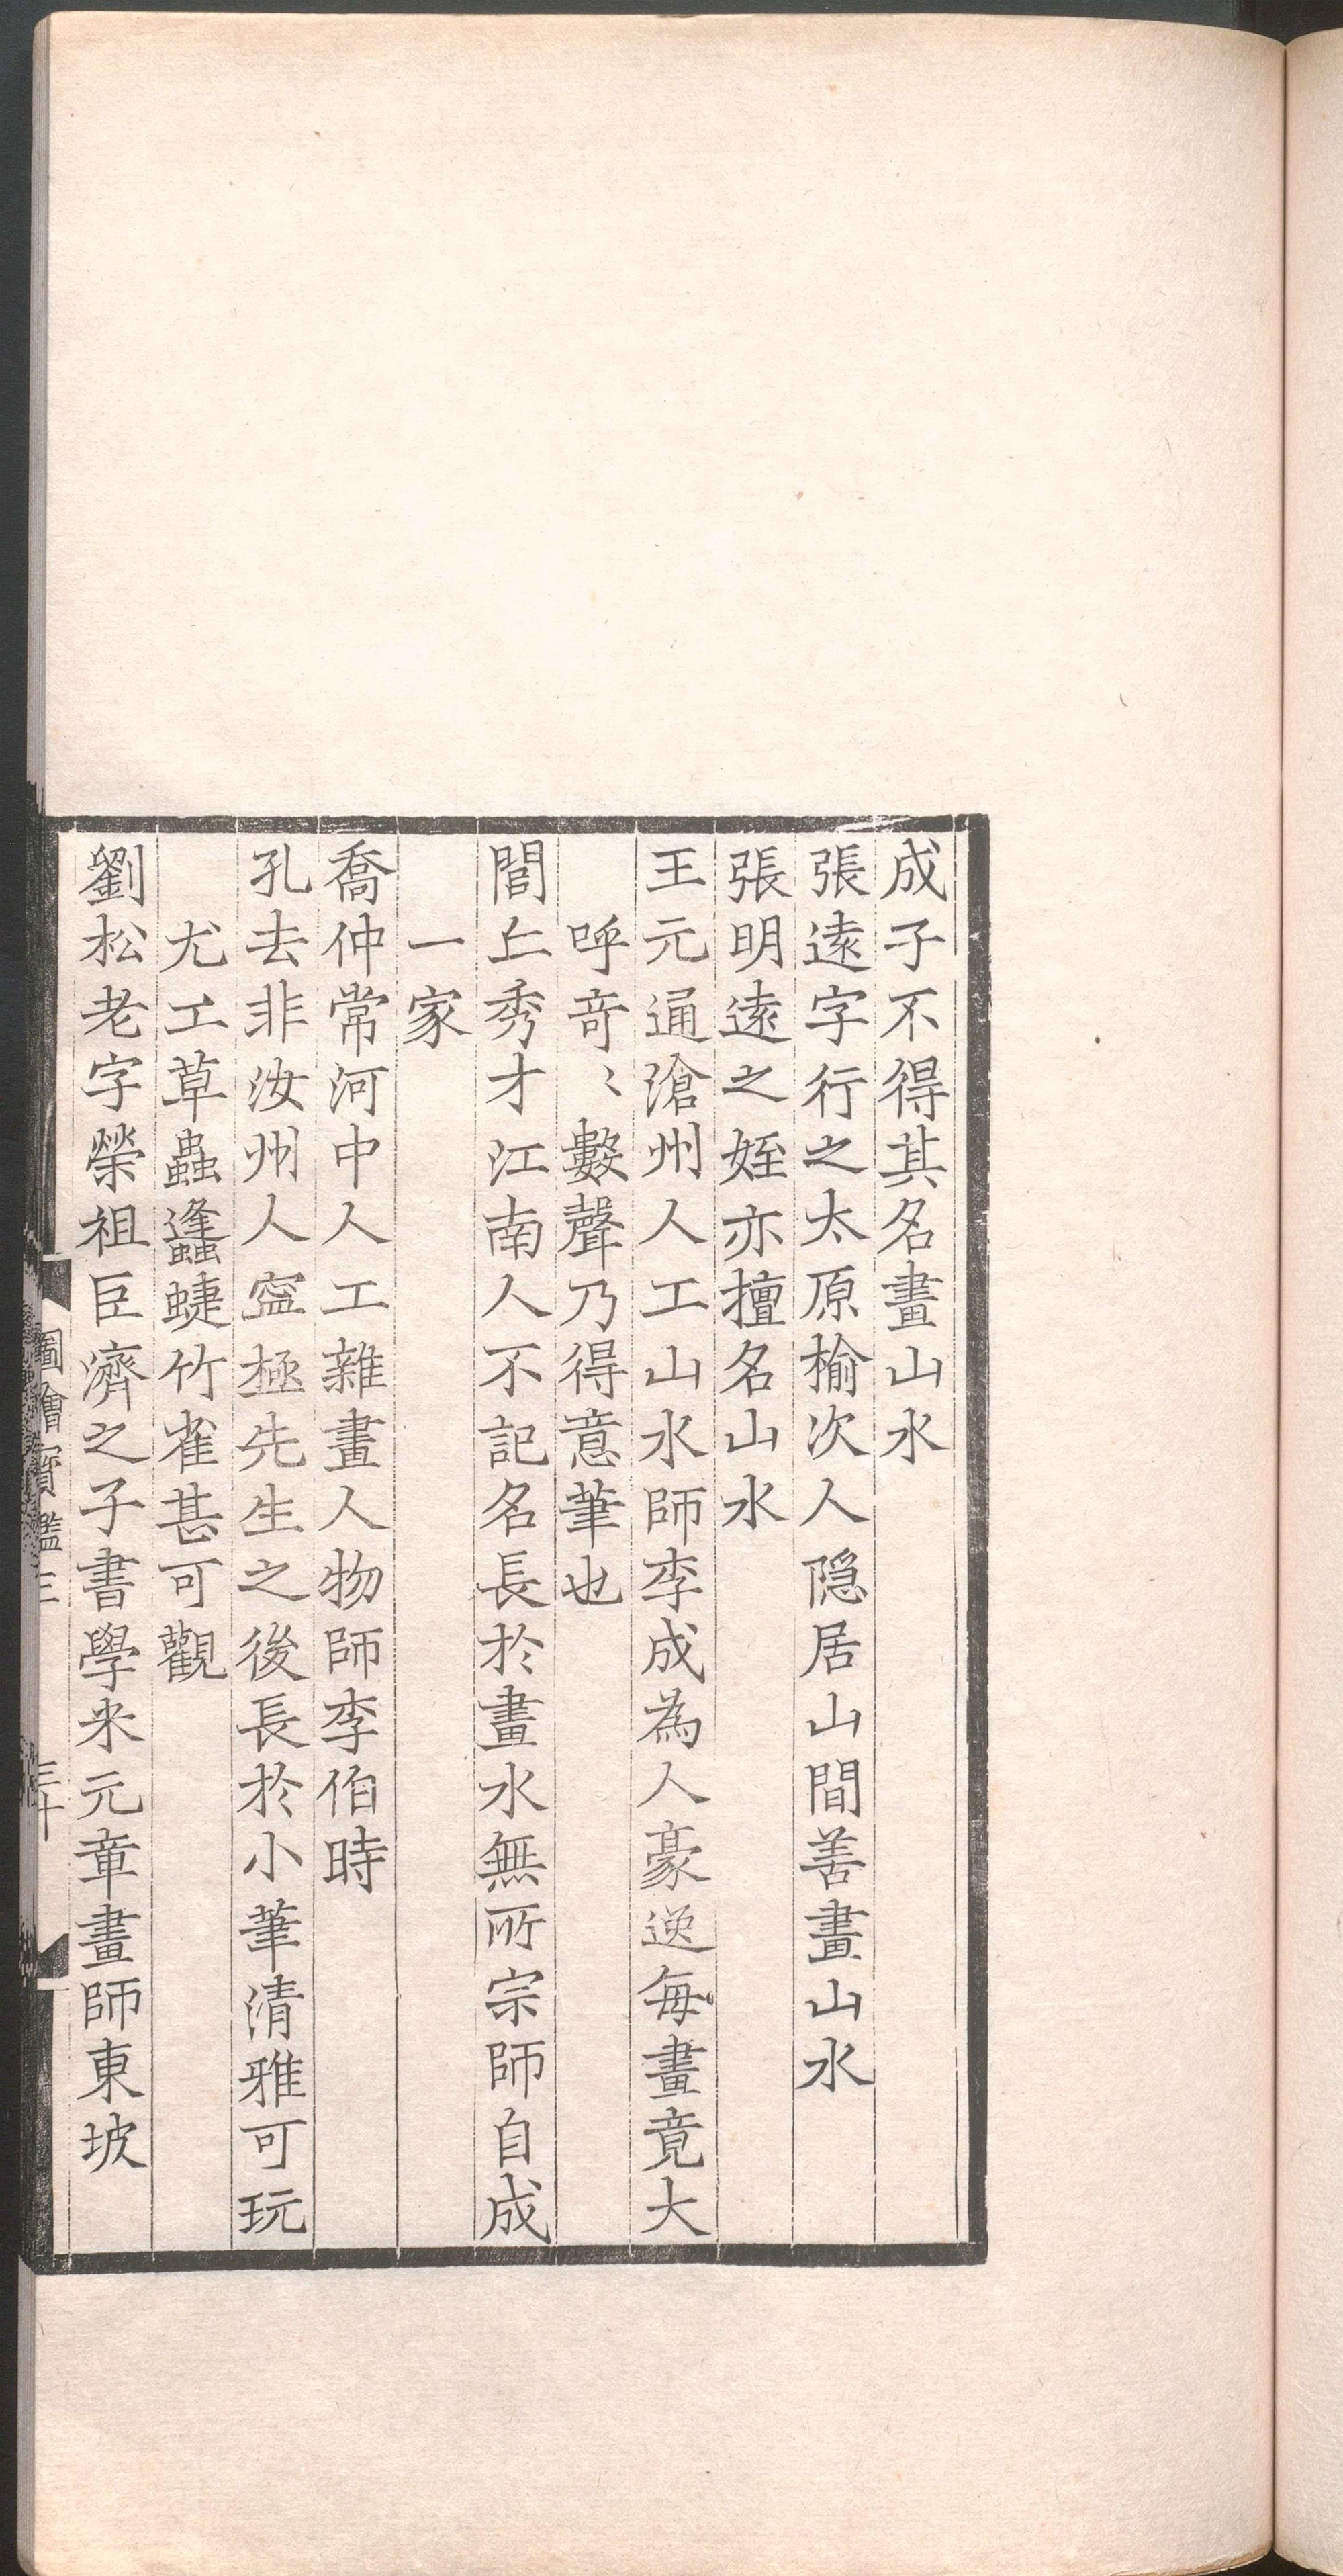 成子不得其名畫山水
張遠字行之太原榆次人隠居山間善畫山水
張明遠之姪亦擅名山水
王元通滄州人工山水師李成為人豪逸每畫竟大
呼竒〻數聲乃得意筆也
閻丘秀才江南人不記名長於畫水無所宗師自成
一家
喬仲常河中人工雜畫人物師李伯時
孔去非汝州人寍極先生之後長於小筆清雅可玩
尤工草蟲蠭蜨竹雀甚可觀
劉松老字榮祖臣濟之子書學米元章畫師東坡
圖繪寶鑑三
三十